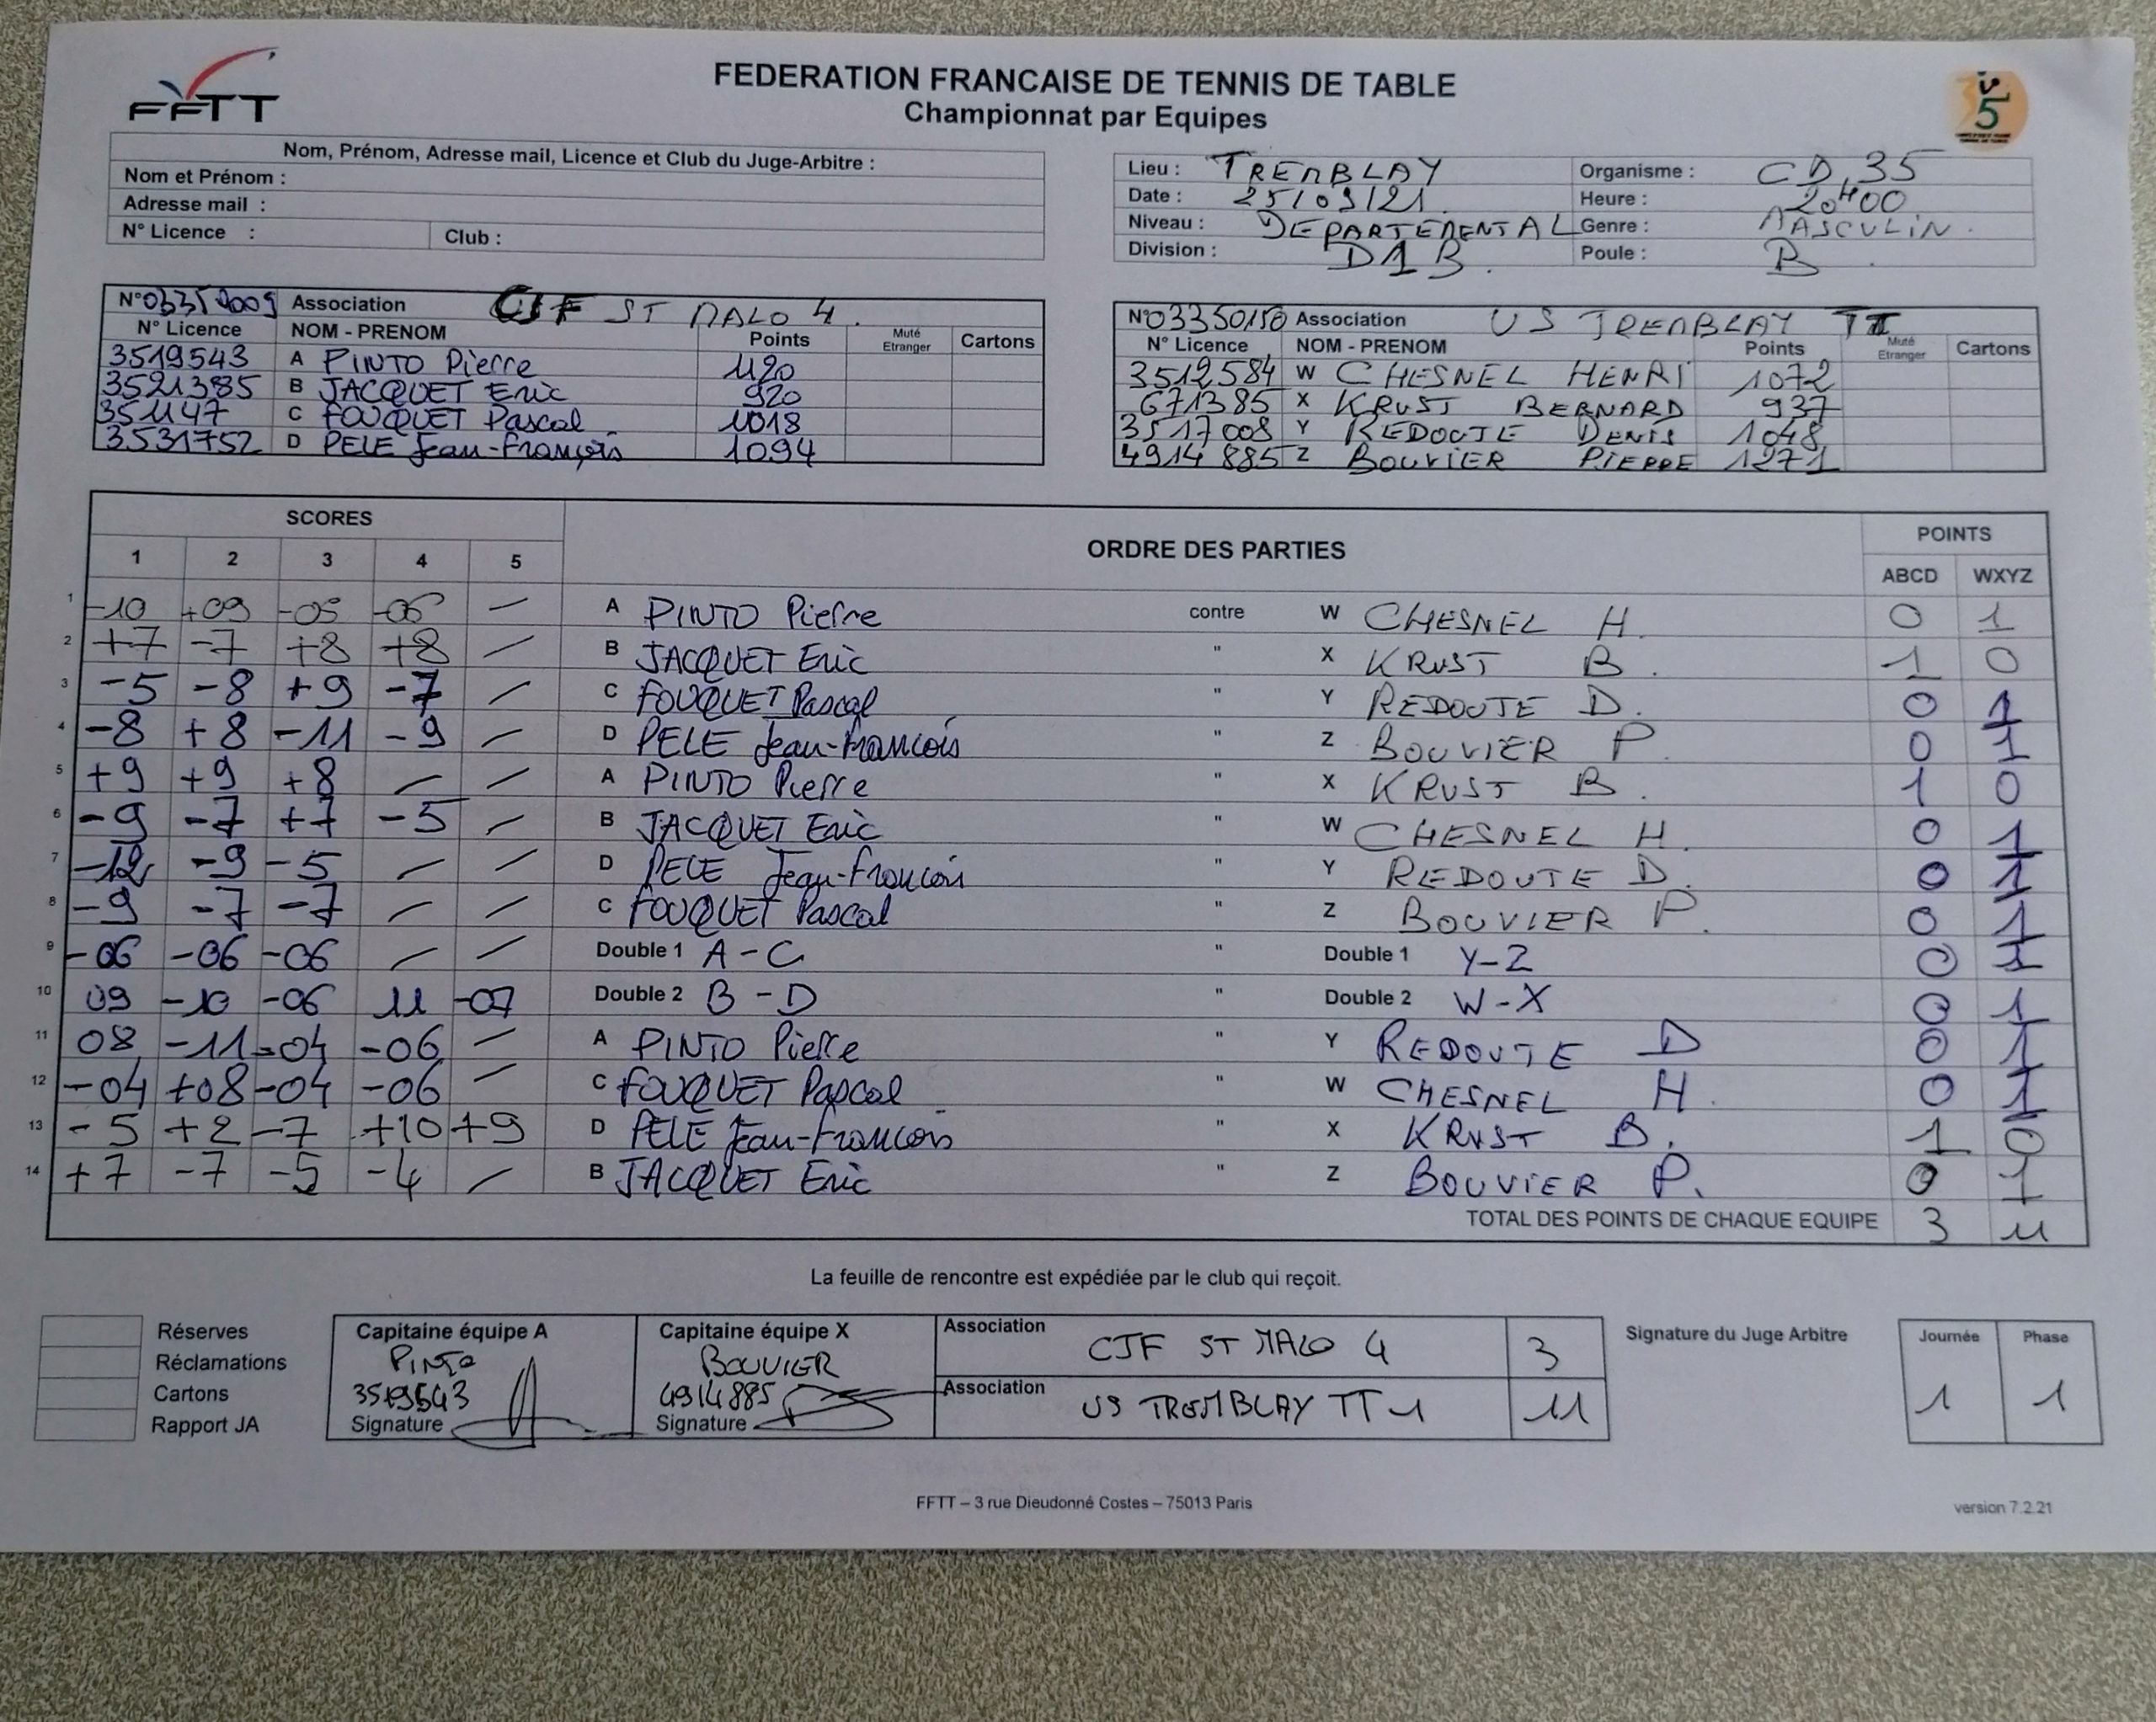 FFTT
FEDERATION FRANCAISE DE TENNIS DE TABLE
Championnat par Equipes
35
Nom, Prénom, Adresse mail, Licence et Club du Juge-Arbitre :
Nom et Prénom :
Adresse mail :
N° Licence : Club :
Lieu : TREMBLAY Organisme : CD 35
Date : 25/09/21 Heure : 20H00
Niveau : DEPARTEMENTAL Genre : MASCULIN.
Division : D1B. Poule : B.
N° Association CJF ST MALO 4.
N° Licence NOM - PRENOM Points Muté Etranger Cartons
3519543 A PINTO Pierre 1120
3521385 B JACQUET Eric 920
351147 C FOUQUET Pascal 1018
3531752 D PELE Jean-François 1094
N°03350150 Association US TREMBLAY TT
N° Licence NOM - PRENOM Points Muté Etranger Cartons
3512584 W CHESNEL HENRI 1072
671385 X KRUST BERNARD 937
3517008 Y REDOUTE DENIS 1048
4914885 Z BOUVIER PIERRE 1271
SCORES ORDRE DES PARTIES POINTS
1 2 3 4 5 ABCD WXYZ
1 -10 +09 -05 -06 — A PINTO Pierre contre W CHESNEL H. 0 1
2 +7 -7 +8 +8 — B JACQUET Eric " X KRUST B. 1 0
3 -5 -8 +9 -7 — C FOUQUET Pascal " Y REDOUTE D. 0 1
4 -8 +8 -11 -9 — D PELE Jean-François " Z BOUVIER P. 0 1
5 +9 +9 +8 — — A PINTO Pierre " X KRUST B. 1 0
6 -9 -7 +7 -5 — B JACQUET Eric " W CHESNEL H. 0 1
7 -12 -9 -5 — — D PELE Jean-François " Y REDOUTE D. 0 1
8 -9 -7 -7 — — C FOUQUET Pascal " Z BOUVIER P. 0 1
9 -06 -06 -06 — — Double 1 A-C " Double 1 Y-Z 0 1
10 09 -10 -06 11 -07 Double 2 B-D " Double 2 W-X 0 1
11 08 -11 -04 -06 — A PINTO Pierre " Y REDOUTE D 0 1
12 -04 +08 -04 -06 — C FOUQUET Pascal " W CHESNEL H. 0 1
13 -5 +2 -7 +10 +9 D PELE Jean-François " X KRUST B. 1 0
14 +7 -7 -5 -4 — B JACQUET Eric " Z BOUVIER P. 0 1
TOTAL DES POINTS DE CHAQUE EQUIPE 3 11
La feuille de rencontre est expédiée par le club qui reçoit.
Réserves
Réclamations
Cartons
Rapport JA
Capitaine équipe A
PINTO
3519543
Signature
Capitaine équipe X
BOUVIER
4914885
Signature
Association CJF ST MALO 4 3
Association US TREMBLAY TT 1 11
Signature du Juge Arbitre
Journée Phase
1 1
FFTT – 3 rue Dieudonné Costes – 75013 Paris
version 7.2.21